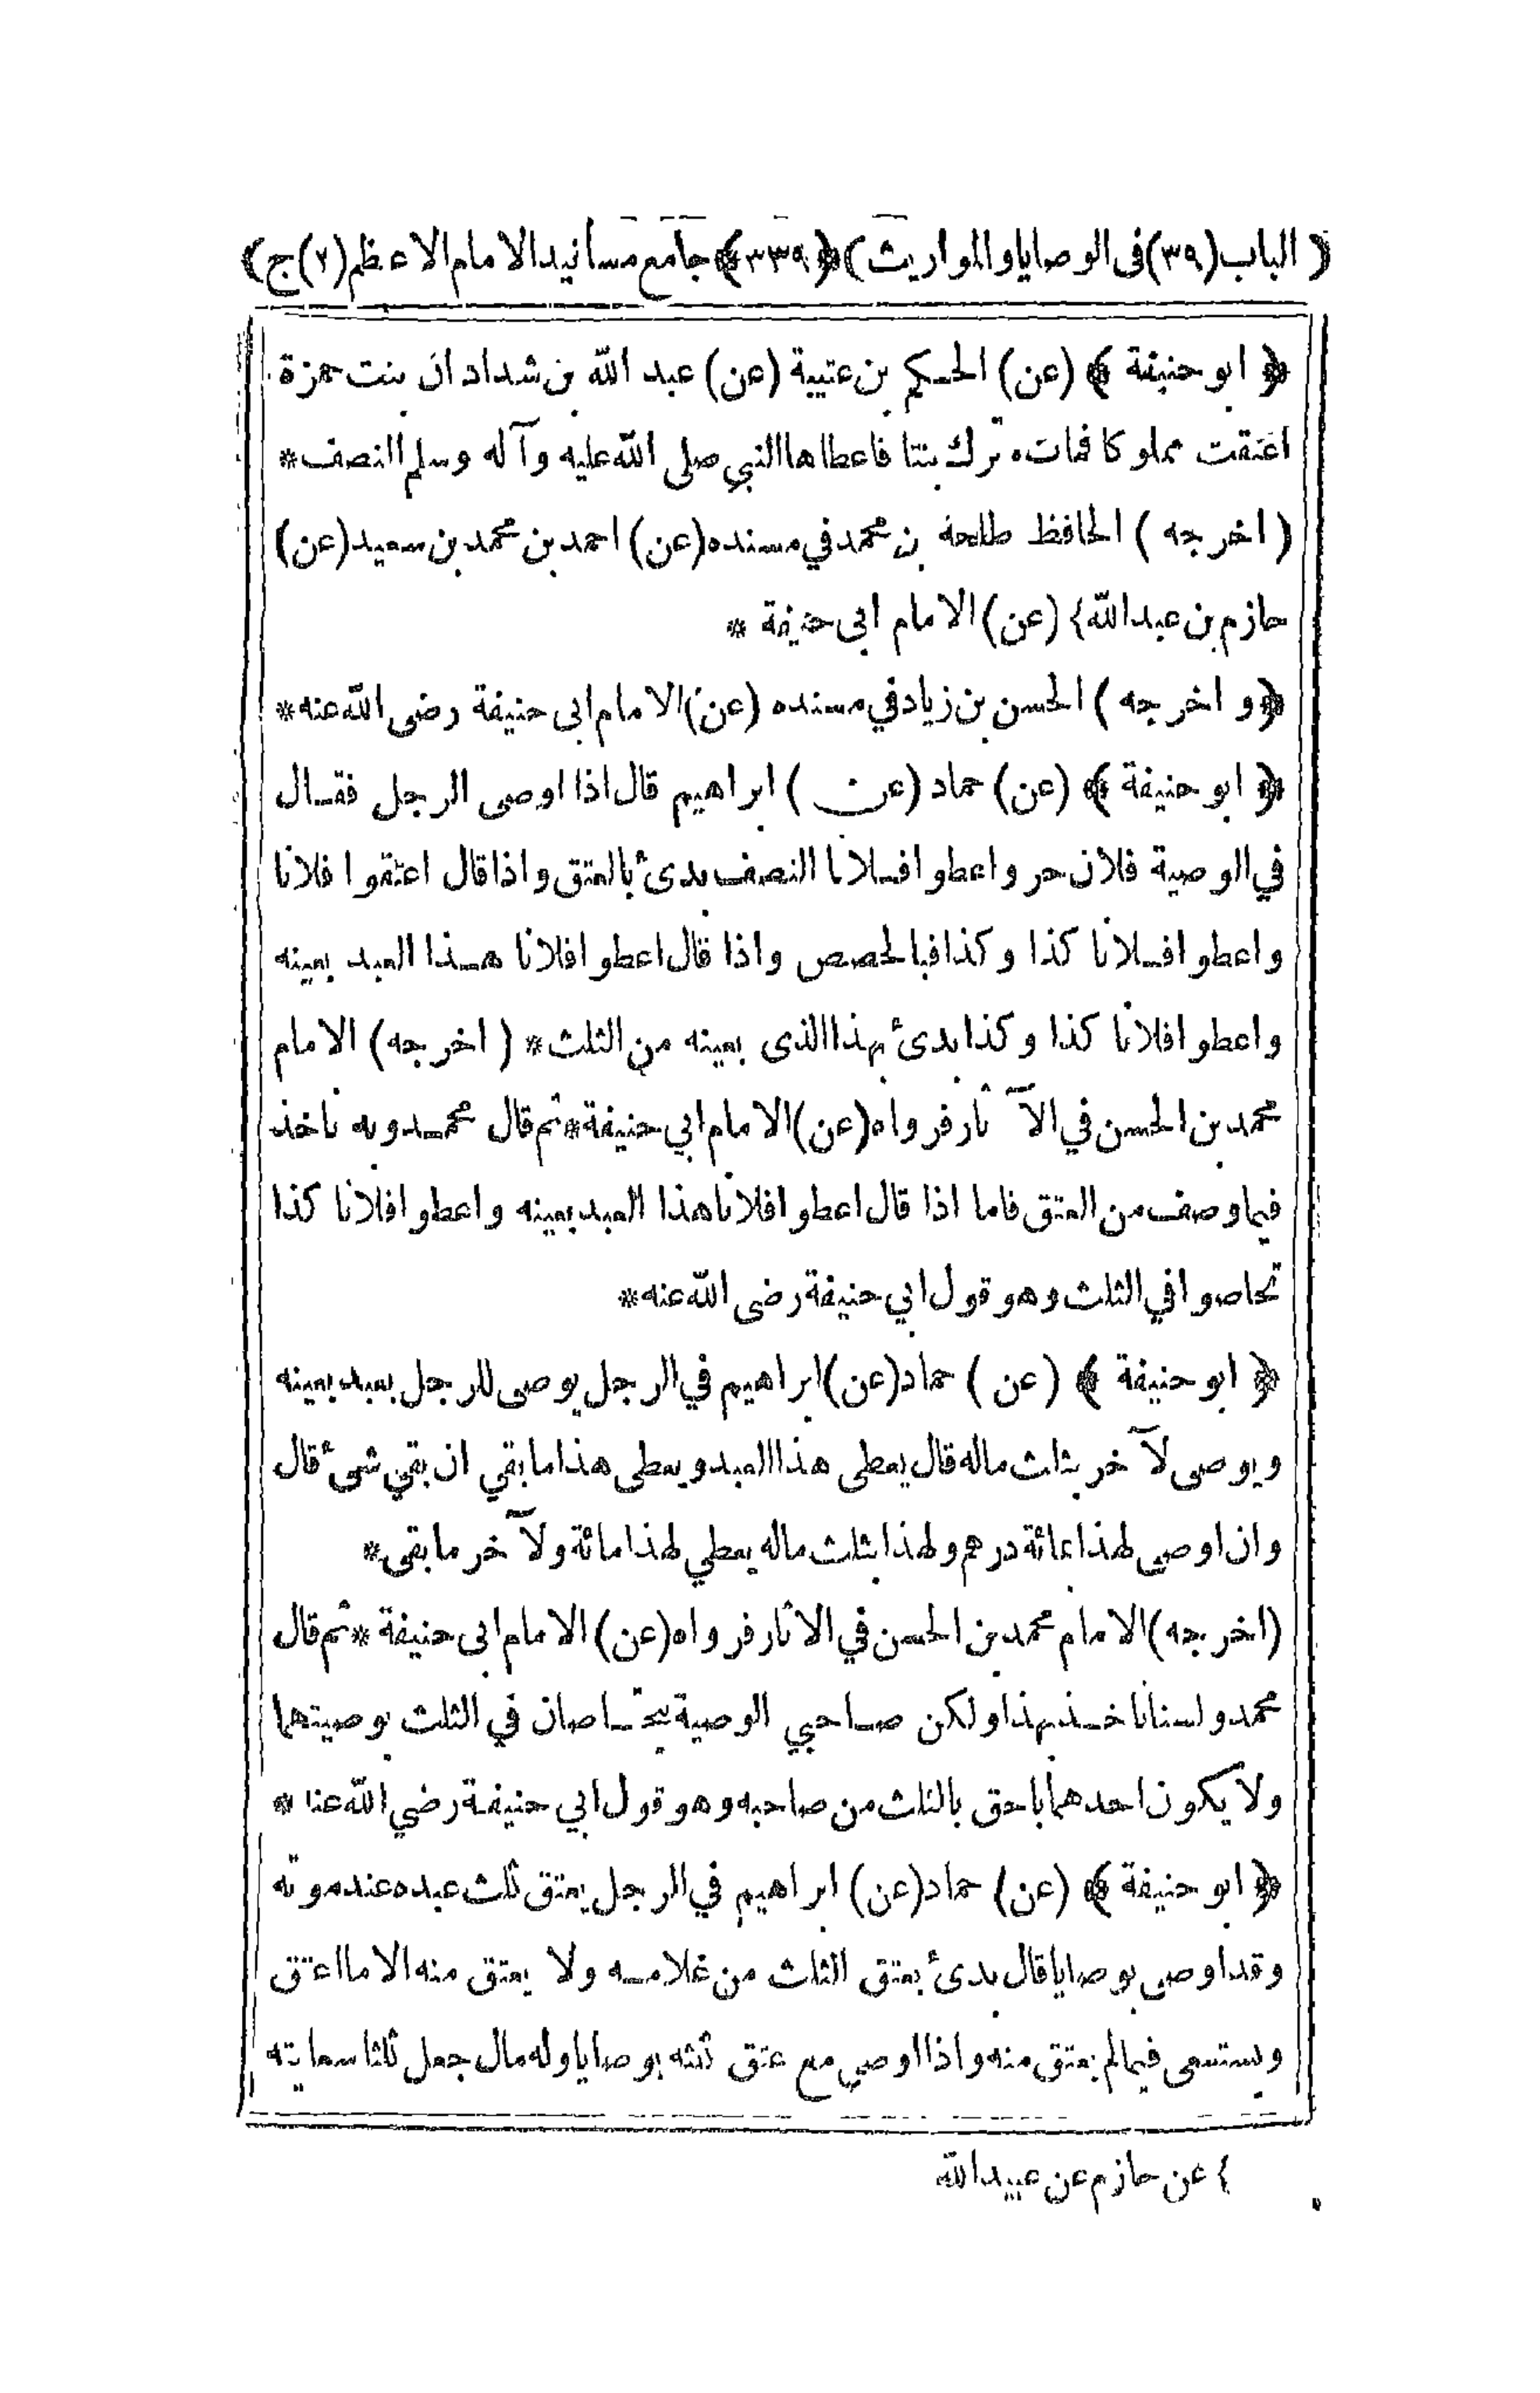 ( الباب (٣٩) فى الوصايا والمواريث ) ﴿ ٣٣٩ ﴾ جامع مسانيد الامام الاعظم (٢) ج )
﴿ ابو حنيفة ﴾ (عن) الحكم بن عتيبة (عن) عبد الله بن شداد ان بنت حمزة
اعتقت مملوكا فمات وترك بنتا فاعطاها النبي صلى الله عليه وآله وسلم النصف *
( اخرجه ) الحافظ طلحة بن محمد في مسنده (عن) احمد بن محمد بن سعيد (عن)
حازم بن عبدالله } (عن) الامام ابى حنيفة *
﴿ و اخرجه ) الحسن بن زياد في مسنده (عن) الامام ابى حنيفة رضى الله عنه *
﴿ ابو حنيفة ﴾ (عن) حماد (عن) ابراهيم قال اذا اوصى الرجل فقال
في الوصية فلان حر واعطوا فلانا النصف بدئ بالعتق واذا قال اعتقوا فلانا
واعطوا فلانا كذا وكذا فبالحصص واذا قال اعطوا فلانا هذا العبد بعينه
واعطوا فلانا كذا وكذا بدئ بهذا الذى بعينه من الثلث * ( اخرجه ) الامام
محمد بن الحسن في الآثار فرواه (عن) الامام ابي حنيفة * ثم قال محمد وبه ناخذ
فيما وصف من العتق فاما اذا قال اعطوا فلانا هذا العبد بعينه واعطوا فلانا كذا
تحاصوا في الثلث وهو قول ابي حنيفة رضى الله عنه *
﴿ ابو حنيفة ﴾ (عن) حماد (عن) ابراهيم في الرجل يوصى للرجل بعبد بعينه
ويوصى لآخر بثلث ماله قال يعطى هذا العبد ويعطى هذا ما بقي ان بقي شئ قال
وان اوصى لهذا بمائة درهم ولهذا بثلث ماله يعطي لهذا مائة ولآخر ما بقى *
(اخرجه) الامام محمد بن الحسن في الاثار فرواه (عن) الامام ابى حنيفة * ثم قال
محمد ولسنا ناخذ بهذا ولكن صاحبي الوصية يتحاصان في الثلث بوصيتهما
ولا يكون احدهما باحق بالثلث من صاحبه وهو قول ابي حنيفة رضي الله عنا *
﴿ ابو حنيفة ﴾ (عن) حماد (عن) ابراهيم في الرجل يعتق ثلث عبده عند موته
وقد اوصى بوصايا قال بدئ بعتق الثلث من غلامه ولا يعتق منه الا ما اعتق
ويستسعى فيما لم يعتق منه واذا اوصى مع عتق ثلثه بوصايا وله مال جعل ثلثا سعايته
} عن حازم عن عبيدالله